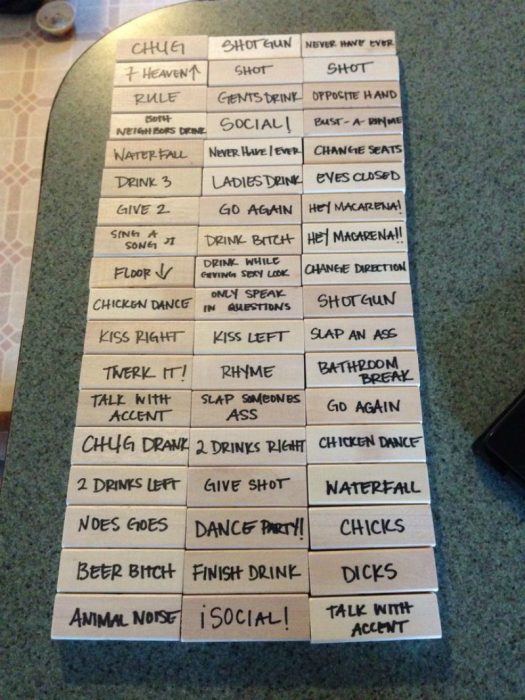 CHUG SHOTGUN NEVER HAVE EVER
7 HEAVEN↑ SHOT SHOT
RULE GENTS DRINK OPPOSITE HAND
BOTH
NEIGHBORS DRINK SOCIAL! BUST-A-RHYME
WATERFALL NEVER HAVE I EVER CHANGE SEATS
DRINK 3 LADIES DRINK EYES CLOSED
GIVE 2 GO AGAIN HEY MACARENA!
SING A
SONG ♫ DRINK BITCH HEY MACARENA!!
FLOOR ↓ DRINK WHILE
GIVING SEXY LOOK CHANGE DIRECTION
CHICKEN DANCE ONLY SPEAK
IN QUESTIONS SHOTGUN
KISS RIGHT KISS LEFT SLAP AN ASS
TWERK IT! RHYME BATHROOM
BREAK
TALK WITH
ACCENT SLAP SOMEONES
ASS GO AGAIN
CHUG DRANK 2 DRINKS RIGHT CHICKEN DANCE
2 DRINKS LEFT GIVE SHOT WATERFALL
NOES GOES DANCE PARTY! CHICKS
BEER BITCH FINISH DRINK DICKS
ANIMAL NOISE ¡SOCIAL! TALK WITH
ACCENT